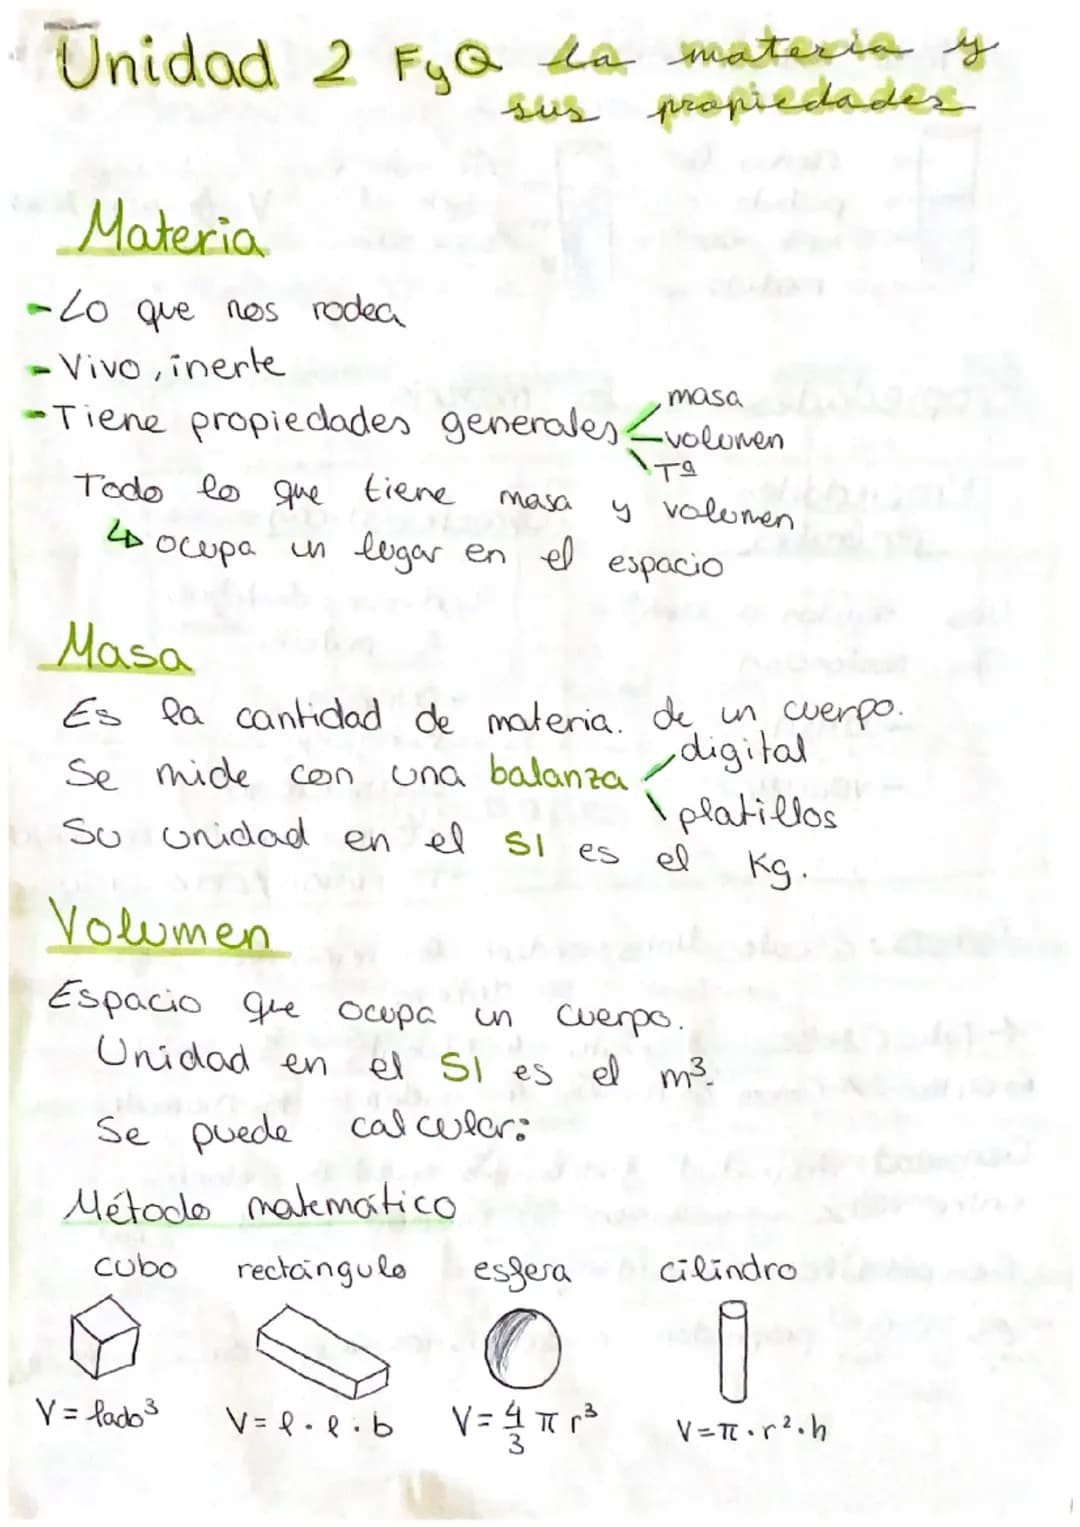 Unidad 2 FyQ La materia y
sus propiedades
Materia
- Lo que nos rodea
- Vivo, inerte
- Tiene propiedades generales
masa
volumen
Tª
Todo lo que tiene masa y volumen
↳ ocupa un lugar en el espacio
Masa
Es la cantidad de materia. de un cuerpo.
Se mide con una balanza
digital
platillos
Su unidad en el SI es el Kg.
Volumen
Espacio que ocupa un cuerpo.
Unidad en el SI es el m³.
Se puede calcular:
Método matemático
cubo rectángulo esfera cilindro
V = lado³ V = l · l · b V = 4/3 π r³ V = π · r² · h